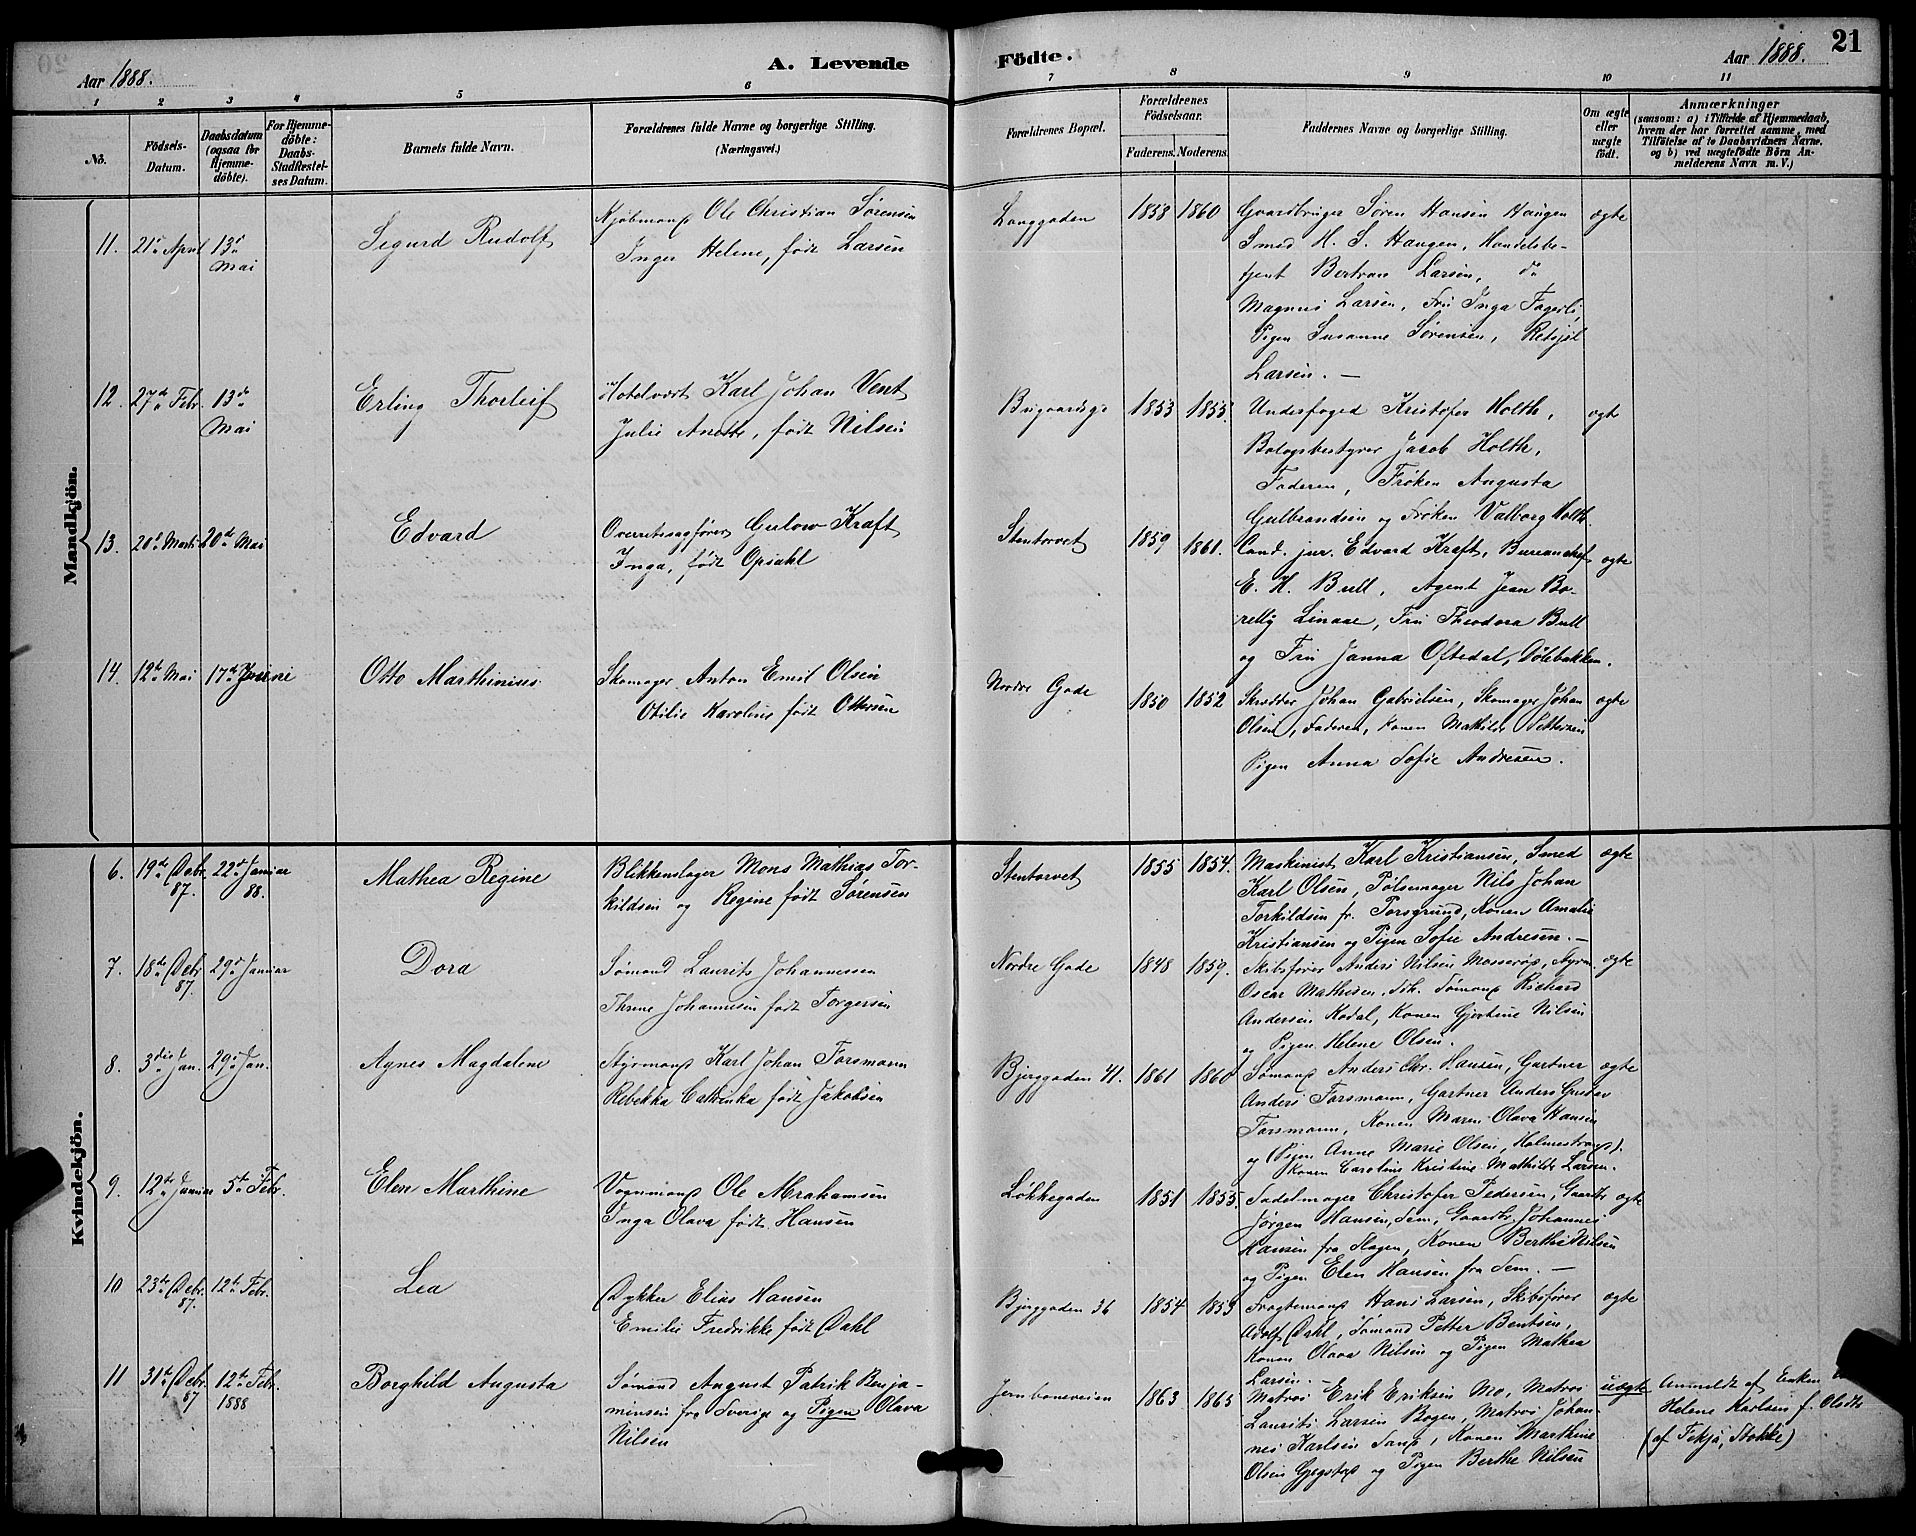 Aar 1888.
A. Levende
Födte.
Aar 1888.
21
1 2 3 4 5 6 7 8 9 10 11
No.
Födsels-Datum.
Daabsdatum (ogsaa for Hjemmedöbte).
For Hjemmedöbte: Daabs-Stadfæstelses Datum.
Barnets fulde Navn.
Forældrenes fulde Navne og borgerlige Stilling. (Næringsvei.)
Forældrenes Bopæl.
Forældrenes Födselsaar.
Faderens. Moderens.
Faddernes Navne og borgerlige Stilling.
Om ægte eller uægte födt.
Anmærkninger (saasom: a) i Tilfælde af Hjemmedaab, hvem der har forrettet samme, med Tilföielse af to Daabsvidners Navne, og b) ved uægtefödte Börn Anmelderens Navn m. V.)
Mandkjön.
11. 21d April 13d Mai
Sigurd Rudolf
Kjøbmand Ole Christian Sørensen
Inger Helene, født Larsen
Langgaden 1858 1860
Gaardbruger Søren Hansen Haugen
Smed M. S. Haugen, Handelsbe-
tjent Bertran Larsen, do
Magnus Larsen, Fru Inga Fagerli,
Pigen Susanne Sørensen,
Larsen. —
ægte
12. 27de Febr. 13de Mai
Erling Thorleif
Hotelvært Karl Johan Vent
Julie Anette, født Nilsen
1853 1855.
Underfoged Kristofer Holth,
Bologsbestyrer Jacob Holth,
Faderen, Frøken Augusta
Gulbrandsen og Frøken Valborg Holth.
ægte
13. 20d Marts 20de Mai
Edvard
Overretssagfører Gulow Kraft
Inga, født Opsahl
Stentorvet 1859 1861.
Cand. jur. Edvard Kraft, Bureauchef
E. H. Bull, Agent Jean Bo-
relly Linaae, Fru Theodora Bull
og Fru Janna Oftedal, Dølebakken.
ægte
14. 12te Mai 17de Juni
Otto Marthinius
Skomager Anton Emil Olsen
Otilie Karoline født Ottersen
Nordre Gade 1850 1852
Skrædder Johan Gabrielsen, Skomager Johan
Olsen, Faderen, Konen Mathilde Pettersen
Pigen Anna Sofie Andresen.
ægte
Kvindekjön.
6. 19de Debr. 87. 22d Januar 88.
Mathea Regine
Blikkenslager Mons Mathias Tor-
kildsen og Regine født Sørensen
Stentorvet 1855 1854.
Maskinist Karl Kristiansen, Smed
Karl Olsen, Pølsemager Nils Johan
Torkildsen fr. Porsgrund, Konen Amalie
Kristiansen og Pigen Sofie Andresen. —
ægte
7. 18de Debr. 87. 29d Januar
Dora
Sømand Laurits Johannessen
Thrine Johannesen født Torgersen
Nordre Gade 1848 1859.
Skibsfører Anders Nilsen Masserøp, Styrm.
Oscar Mathisen, Sømand Richard
Andersen Kodal, Konen Gjertine Nilsen
og Pigen Helene Olsen.
ægte
8. 3die Jan. 29d Jan.
Agnes Magdalene
Styrmand Karl Johan Forsmann
Rebekka Cathinka født Jakobsen
Bjerggaden 41. 1861 1860
Sømand Anders Chr. Hansen, Gartner
Anders Forsmann, Gartner Anders Gustav
Forsmann, Konen Maren Olava Hansen
og (Pigen Anne Marie Olsen, Holmestrand).
Konen Caroline Kristine Mathilde Larsen.
ægte
9. 12te Januar 5te Febr.
Elen Marthine
Vognmand Ole Abrahamsen
Inga Olava født Hansen
Løkkegaden 1851 1855.
Sadelmager Christofer Pedersen, Gaardbr.
Jørgen Hansen, Sem, Gaardbr. Johannes
Hansen fra Slagen, Konen Berthe Nilsen
og Pigen Elen Hansen fra Sem. —
ægte
10 23de Debr. 87. 12te Febr.
Lea
Dykker Elias Hansen
Emilie Fredrikke født Dahl
Bjerggaden 36 1854 1853
Fragtemand Hans Larsen, Skibsfører
Adolf Dahl, Sømand Petter Bentsen,
Konen Olava Nilsen og Pigen Mathea
Larsen. —
ægte
11 31te Debr. 87 12te Febr. 1888
Borghild Augusta
Sømand August Patrik Benja-
minsen fra Sverige og Pigen Olava
Nilsen
Jernbaneveien 1863 1865
Matros Erik Eriksen Mo, Matros
Laurits Larsen Bogen, Matros Johan-
nes Karlsen Sand, Konen Marthine
Olsen og Pigen Berthe Nilsen
uægte
Anmeldt af Enken
Helene Karlsen f. Olsdtr.
(af Fekjø, Stokke)